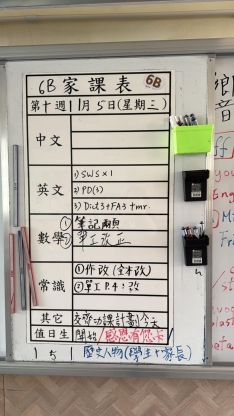 6B家課表 6B
第十週 11月5日(星期三)
中文
英文
1) SWS×1
2) PD(3)
3) Dict3+FA3+mr.
數學
① 筆記兩頁
② 單工改正
常識
① 作改(全本改)
② 單工P.4:改
其它 交齊功課計劃今天
值日生 開始/感恩有您卡
15 歷史人物(學生+家長)